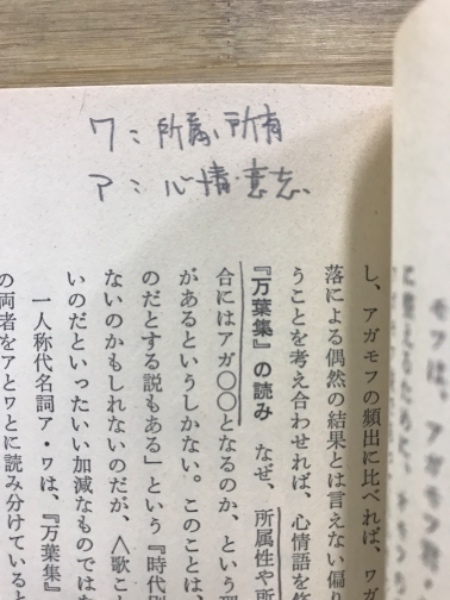 ワ：所属、所有
ア：心情・意志、
し、アガモフの頻出に比べれば、ワガ
落による偶然の結果とは言えない偏り
うことを考え合わせれば、心情語を修
『万葉集』の読み　なぜ、所属性や所
合にはアガ〇〇となるのか、という理
があるというしかない。このことは、
のだとする説もある」という『時代別
ないのかもしれないのだが、〈歌こと
いのだといったいい加減なものではな
一人称代名詞ア・ワは、『万葉集』
の両者をアとワとに読み分けていると